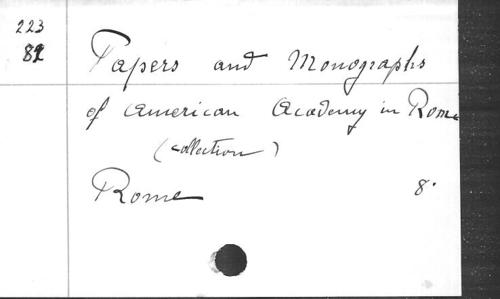 223
82
Papers and Monographs
of American Academy in Rome
(collection)
Rome 8°